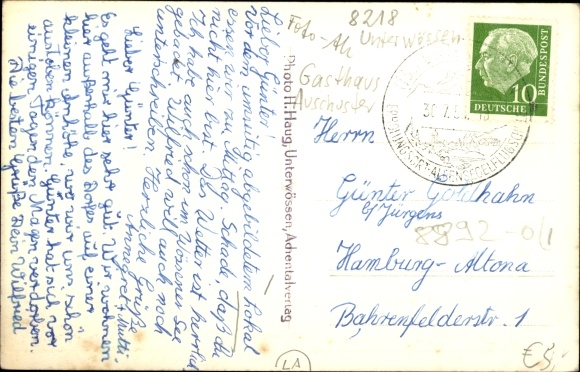 Lieber Günter!
Vor dem unmutig abgebildeten Lokal
essen wir zu Mittag. Schade, daß du
nicht hier bist. Das Wetter ist herrlich.
Ich habe auch schon im Wössner See
gebadet. Wilfried will auch noch
unterschreiben. Herzliche Grüße
Annegret + Mutti.
Lieber Günter!
Es geht mir hier sehr gut. Wir wohnen
hier außerhalb des Dorfes auf einer
kleinen Anhöhe, wo wir uns schön
austoben können. Günter hat sich vor
einigen Tagen den Magen verdorben.
Die besten Grüße Dein Wilfried
Photo H. Haug, Unterwössen, Achentalverlag
8218
Foto-Ak Unterwössen
Gasthaus
10
DEUTSCHE
BUNDESPOST
Herrn
Günter Goldhahn
c/o Jürgens
8892-01
Hamburg-Altona
Bahrenfelderstr. 1
LA
€5,-